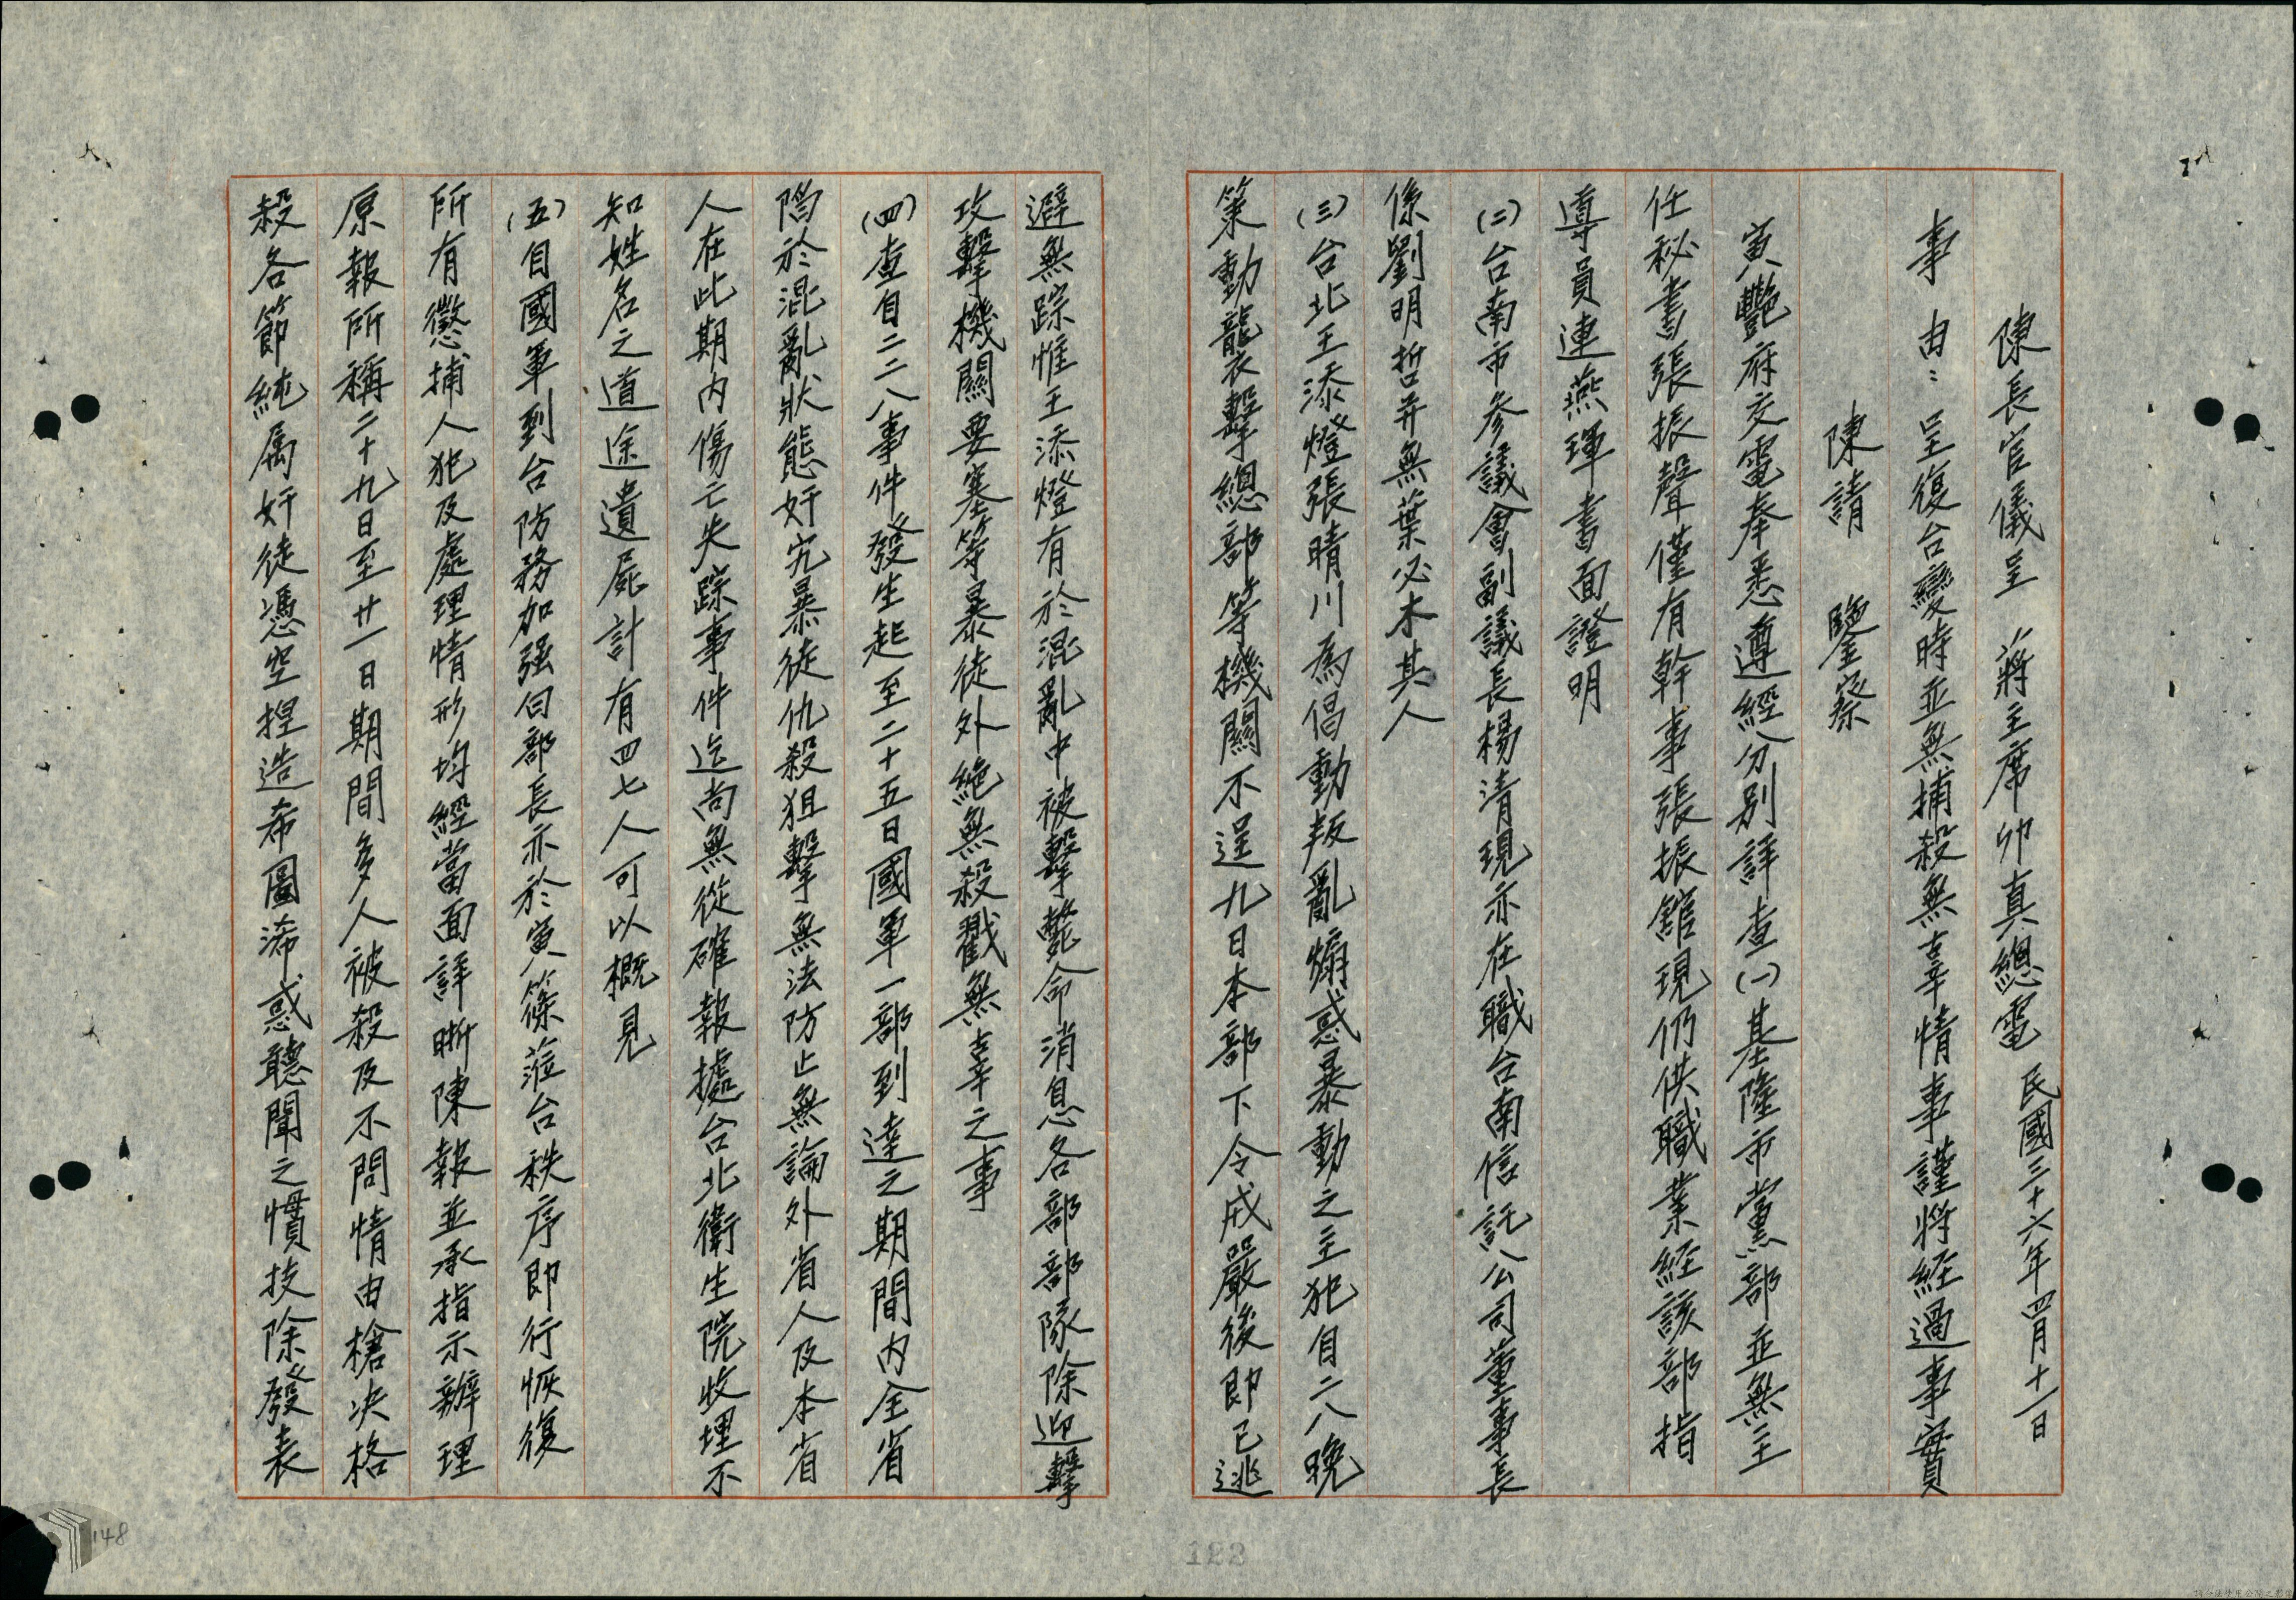 陳長官儀呈　蔣主席卯真總電　民國三十六年四月十一日
事　由：呈復台變時並無捕殺無辜情事謹將經過事實
陳請　鑒察
寅艷府交電奉悉遵經分別詳查(一)基隆市黨部並無主
任秘書張振聲僅有幹事張振館現仍供職業經該部指
導員連燕琿書面證明
(二)台南市參議會副議長楊清現亦在職台南信託公司董事長
係劉明哲并無葉必木其人
(三)台北王添燈張晴川為倡動叛亂煽惑暴動之主犯自二八晚
策動襲擊總部等機關不逞九日本部下令戒嚴後即已逃
避無踪惟王添燈有於混亂中被擊斃命消息各部部隊除迎擊
攻擊機關要塞等暴徒外絕無殺戮無辜之事
(四)查自二二八事件發生起至二十五日國軍一部到達之期間內全省
陷於混亂狀態奸宄暴徒仇殺狙擊無法防止無論外省人及本省
人在此期內傷亡失踪事件迄尚無從確報據台北衛生院收埋不
知姓名之道途遺屍計有四七人可以概見
(五)自國軍到台防務加強白部長亦於寅篠蒞台秩序即行恢復
所有懲捕人犯及處理情形均經當面詳晰陳報並承指示辦理
原報所稱二十九日至廿一日期間多人被殺及不問情由槍決格
殺各節純属奸徒憑空揑造希圖淆惑聽聞之慣技除發表
148
122